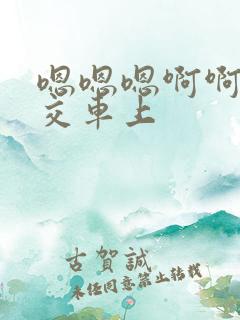 嗯嗯嗯啊啊
交车上
古賀誠
未经同意禁止转载